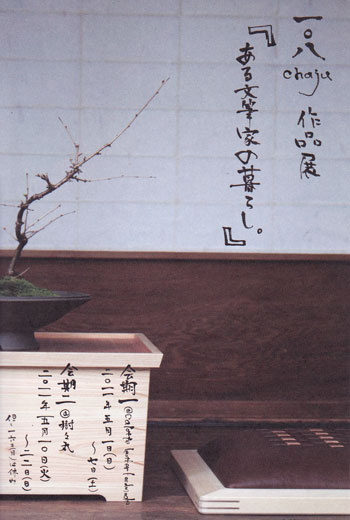 一〇八
chaju
作品展
『ある文筆家の暮らし。』
会期一
二〇一一年五月一日(日)
〜七日(土)
会期二 @樹々丸
二〇一一年五月一〇日(火)
〜二二日(日)